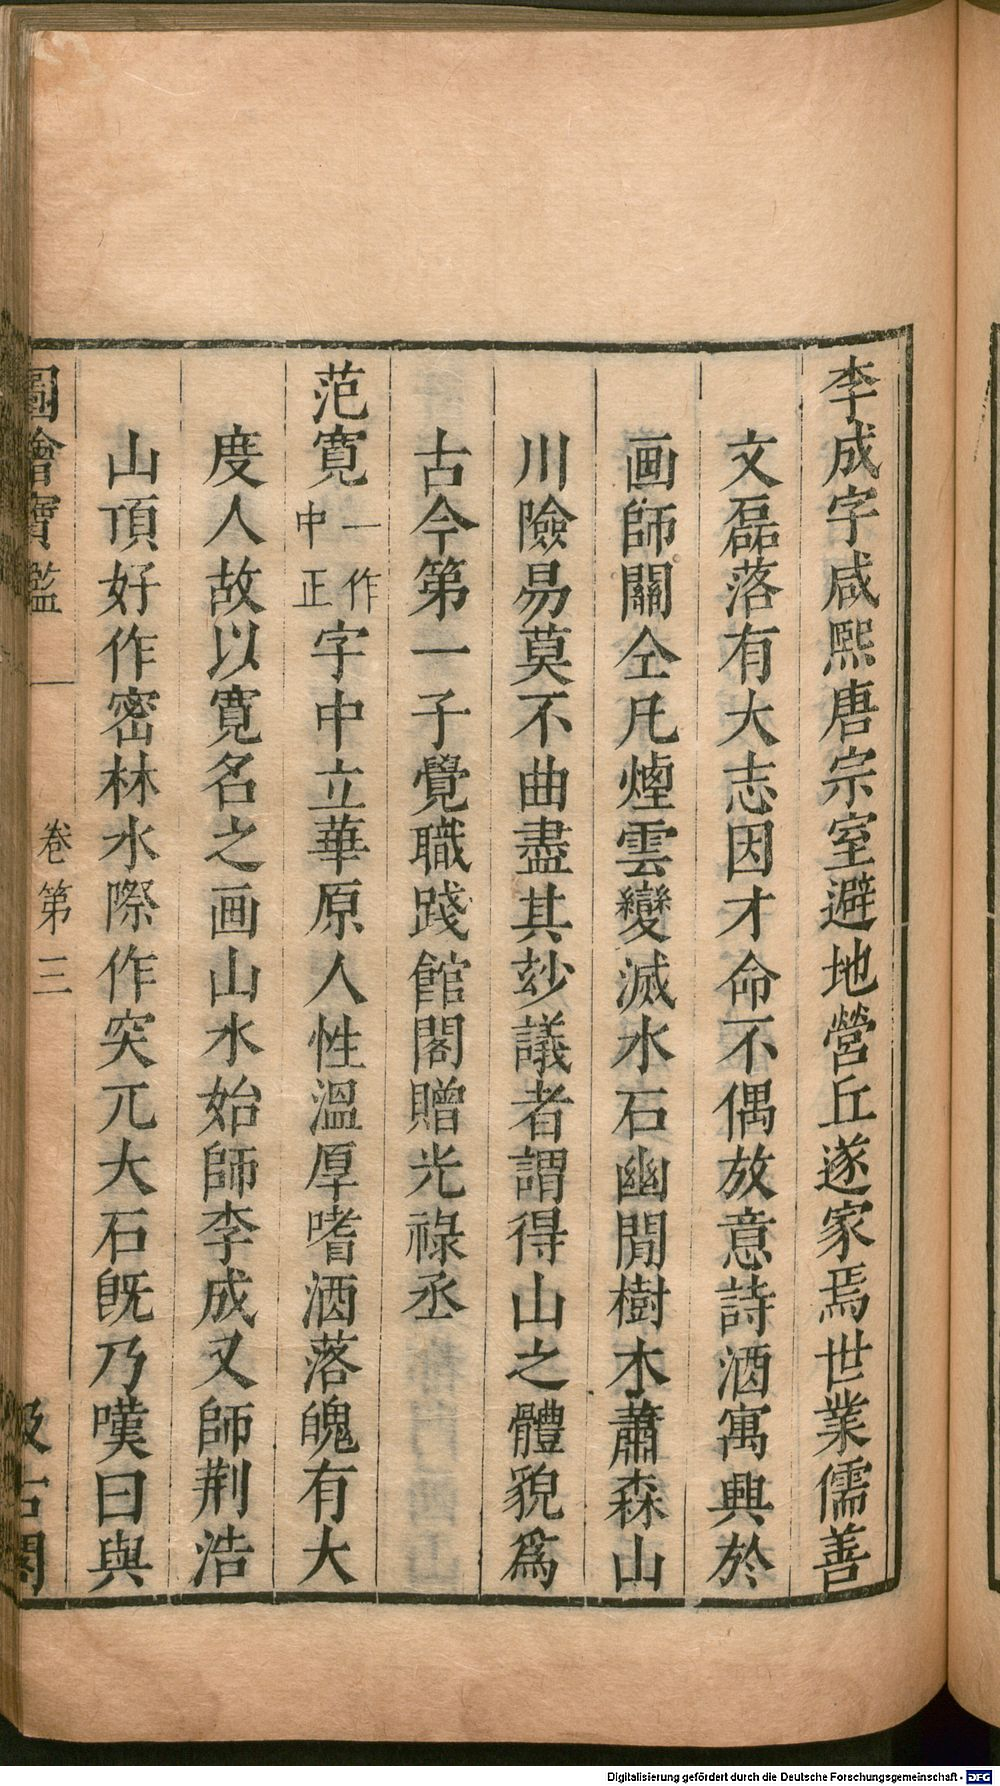 李成字咸熈唐宗室避地營丘遂家焉世業儒善
文磊落有大志因才命不偶放意詩酒寓興於
画師關仝凡煙雲變滅水石幽閒樹木蕭森山
川險易莫不曲盡其妙議者謂得山之體貌爲
古今第一子覺職踐館閣贈光祿丞
范寛一作中正字中立華原人性溫厚嗜酒落魄有大
度人故以寛名之画山水始師李成又師荆浩
山頂好作密林水際作突兀大石旣乃嘆曰與
圖繪寶鑑 卷第三 汲古閣
Digitalisierung gefördert durch die Deutsche Forschungsgemeinschaft - DFG